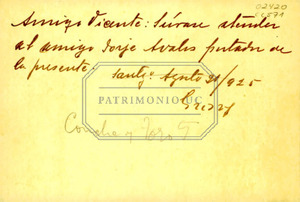 02420
Amigo Vicente: Sírvase atender
al amigo Jorje Avalos portador de
la presente.
Santgo. Agosto 31/925
PATRIMONIO UC
Concha y Toro